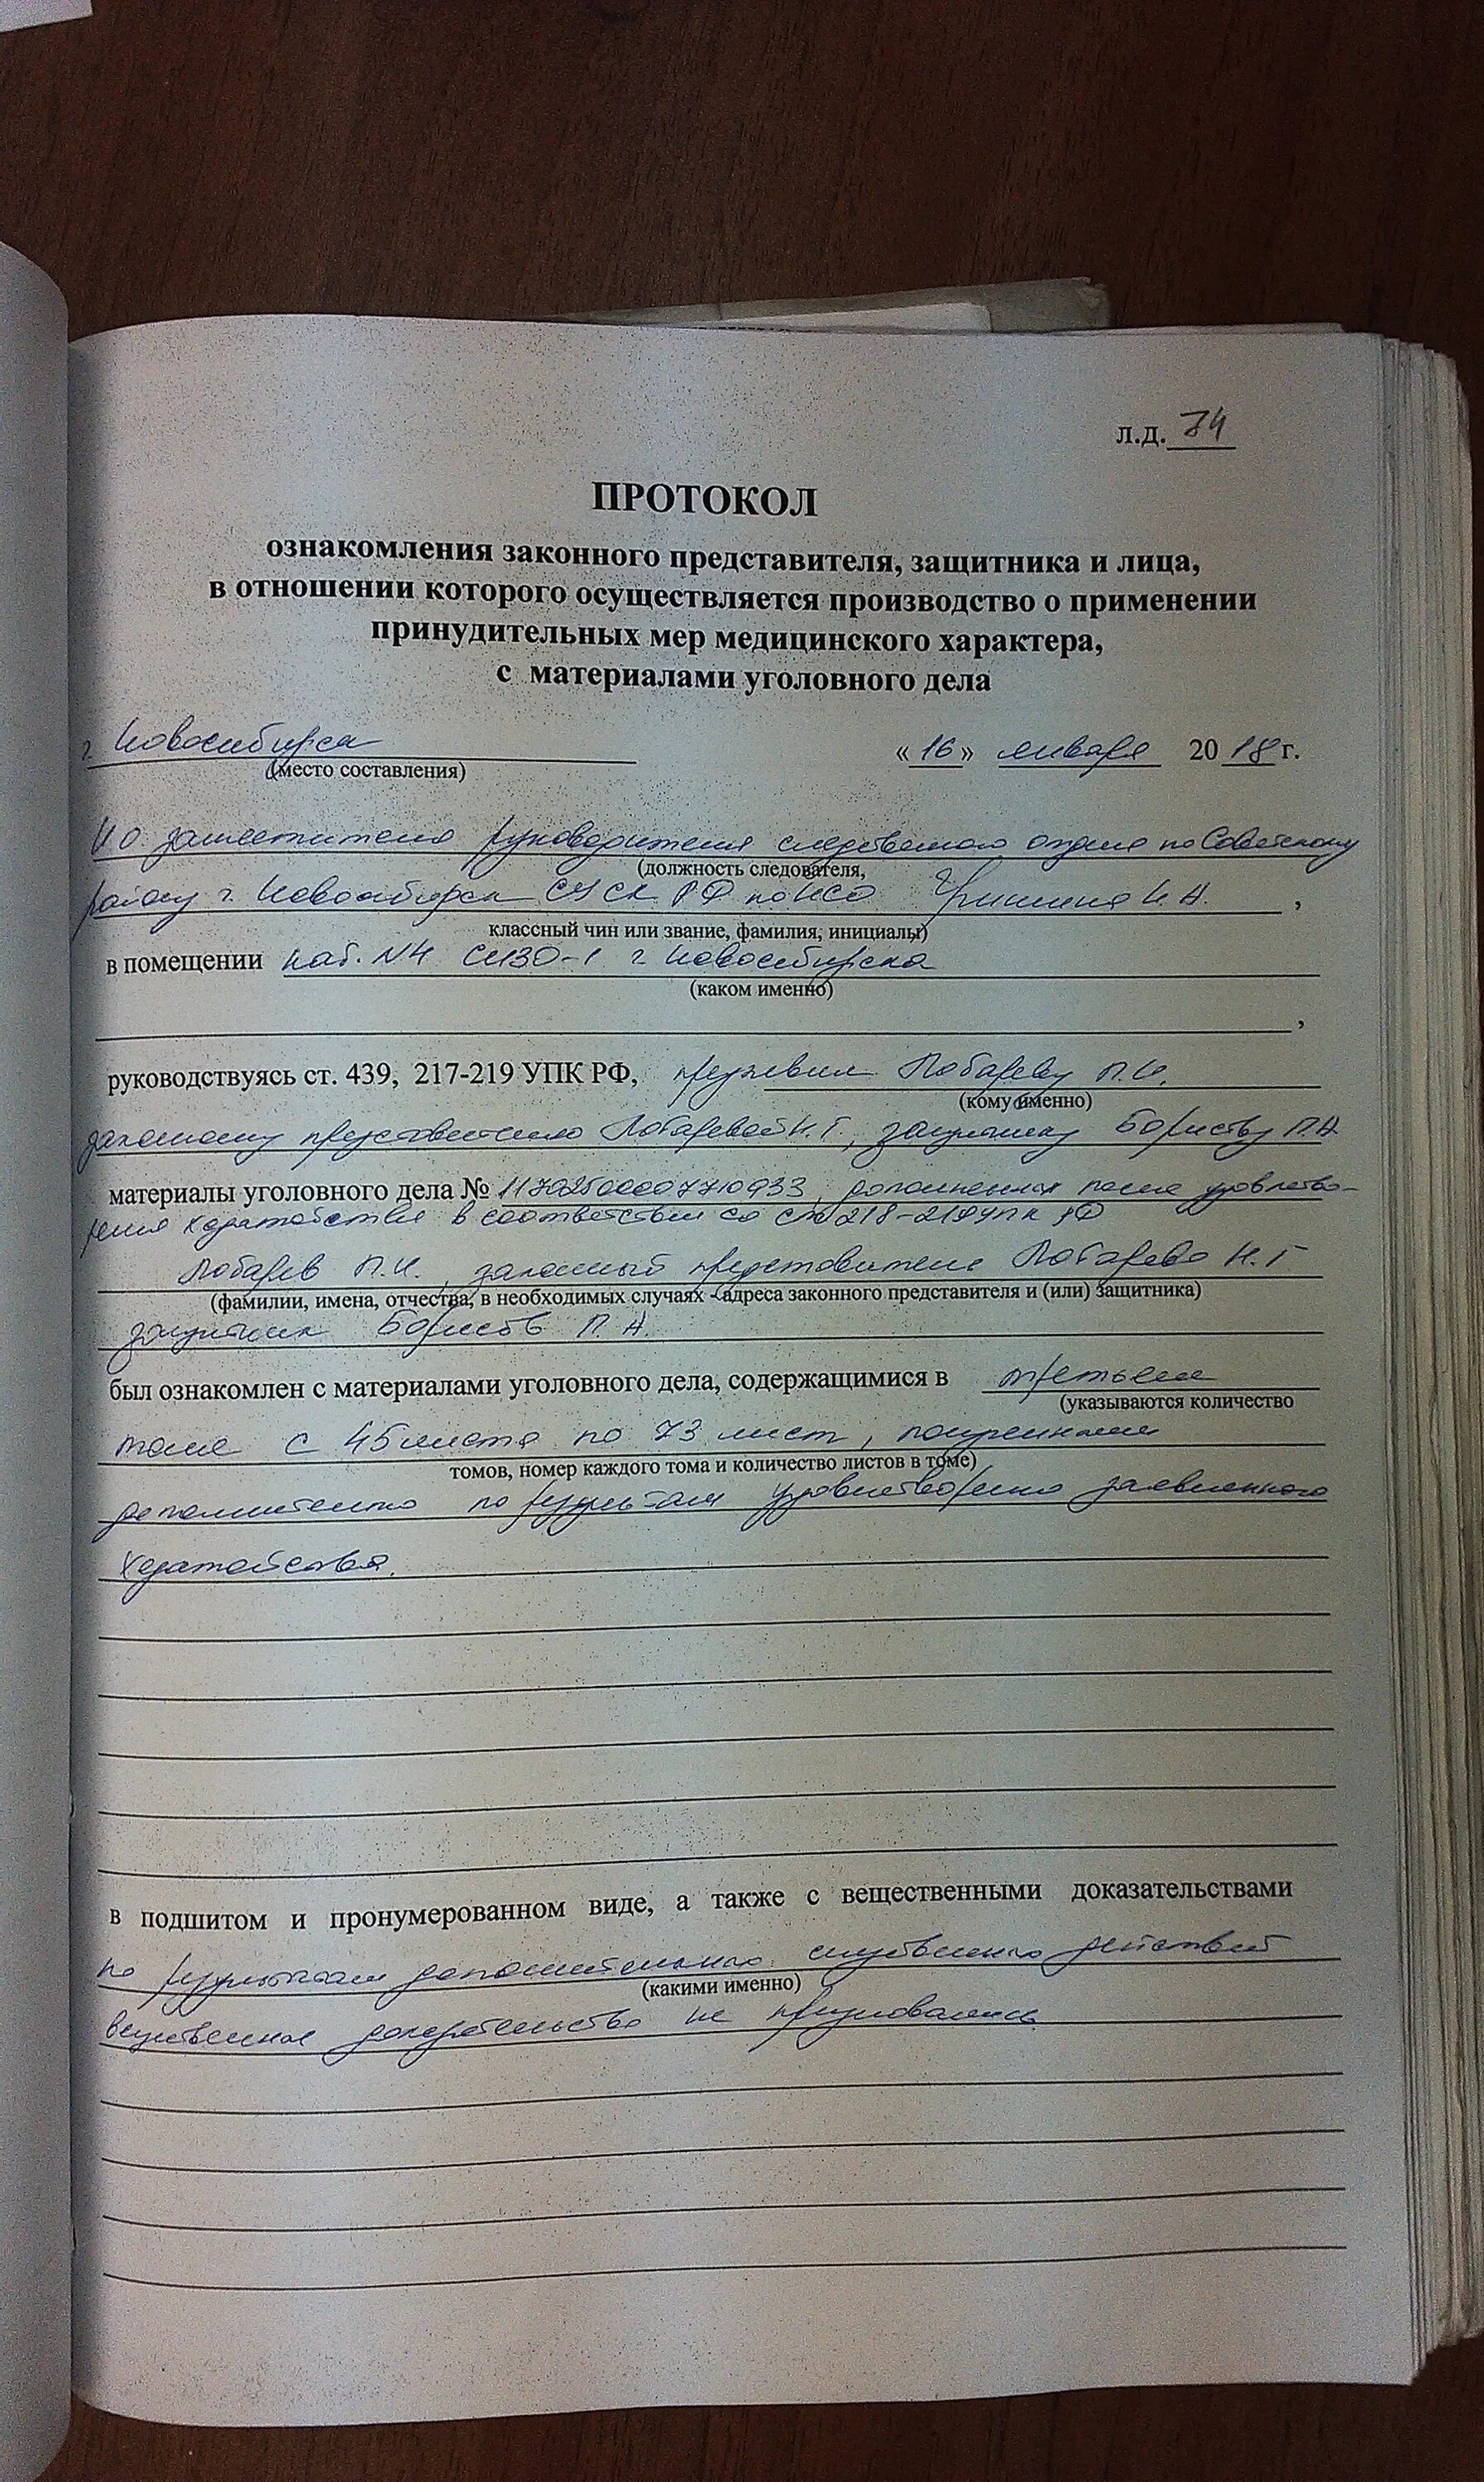 л.д. 74
ПРОТОКОЛ
ознакомления законного представителя, защитника и лица,
в отношении которого осуществляется производство о применении
принудительных мер медицинского характера,
с материалами уголовного дела
г. Новосибирск «16» января 2018 г.
(место составления)
И.О. заместителя руководителя следственного отдела по Советскому
(должность следователя,
району г. Новосибирск СУ СК РФ по НСО Гришина И.А. ,
классный чин или звание, фамилия, инициалы)
в помещении каб. №4 СИЗО-1 г. Новосибирска
(каком именно)
,
руководствуясь ст. 439, 217-219 УПК РФ, предъявил Лобареву П.И.
(кому именно)
законному представителю Лобаревой Н.Г., защитнику Борисову П.А.
материалы уголовного дела № 11702500007710933, дополненная после удовлетво-
рения ходатайства в соответствии со ст. 218-219 УПК РФ
Лобарев П.И., законный представитель Лобарева Н.Г
(фамилии, имена, отчества, в необходимых случаях - адреса законного представителя и (или) защитника)
защитник Борисов П.А.
был ознакомлен с материалами уголовного дела, содержащимися в третьем
(указываются количество
томе с 45 листа по 73 лист,
томов, номер каждого тома и количество листов в томе)
дополнительно по результатам удовлетворения заявленного
ходатайства.
в подшитом и пронумерованном виде, а также с вещественными доказательствами
по результатам дополнительных следственных действий
(какими именно)
вещественные доказательства не признавались.